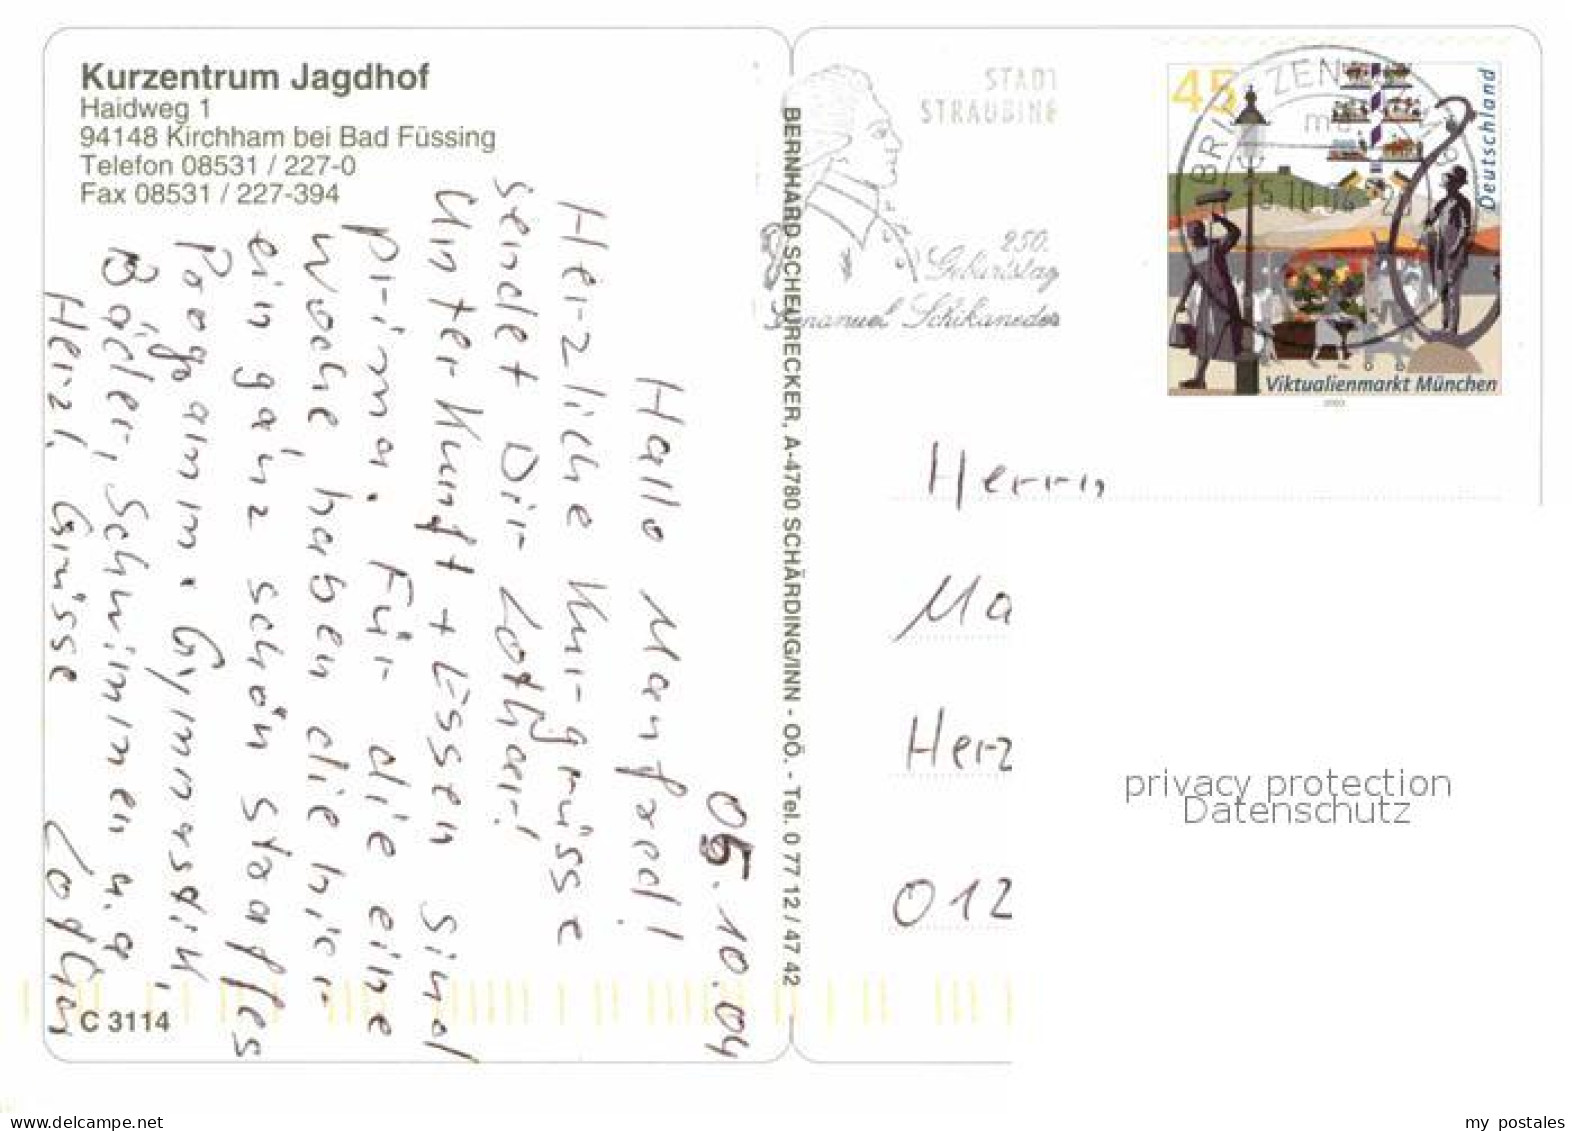 Kurzentrum Jagdhof
Haidweg 1
94148 Kirchham bei Bad Füssing
Telefon 08531 / 227-0
Fax 08531 / 227-394
05.10.04
Hallo Manfred!
Herzliche Kurgrüsse
sendet Dir Lothar!
Unterkunft + Essen sind
prima. Für die eine
Woche haben die hier
ein ganz schön straffes
Programm. Gymnastik,
Bäder, Schwimmen u.a.
Herzl. Grüsse Lothar
C 3114
BERNHARD SCHEURECKER, A-4780 SCHÄRDING/INN - OÖ. - Tel. 0 77 12 / 47 42
STADT
STRAUBING
250.
Geburtstag
Emanuel Schikaneder
45
Deutschland
BRIEFZENTRUM
Viktualienmarkt München
2003
Herrn
Ma
Herz
012
privacy protection
Datenschutz
www.delcampe.net
my_postales